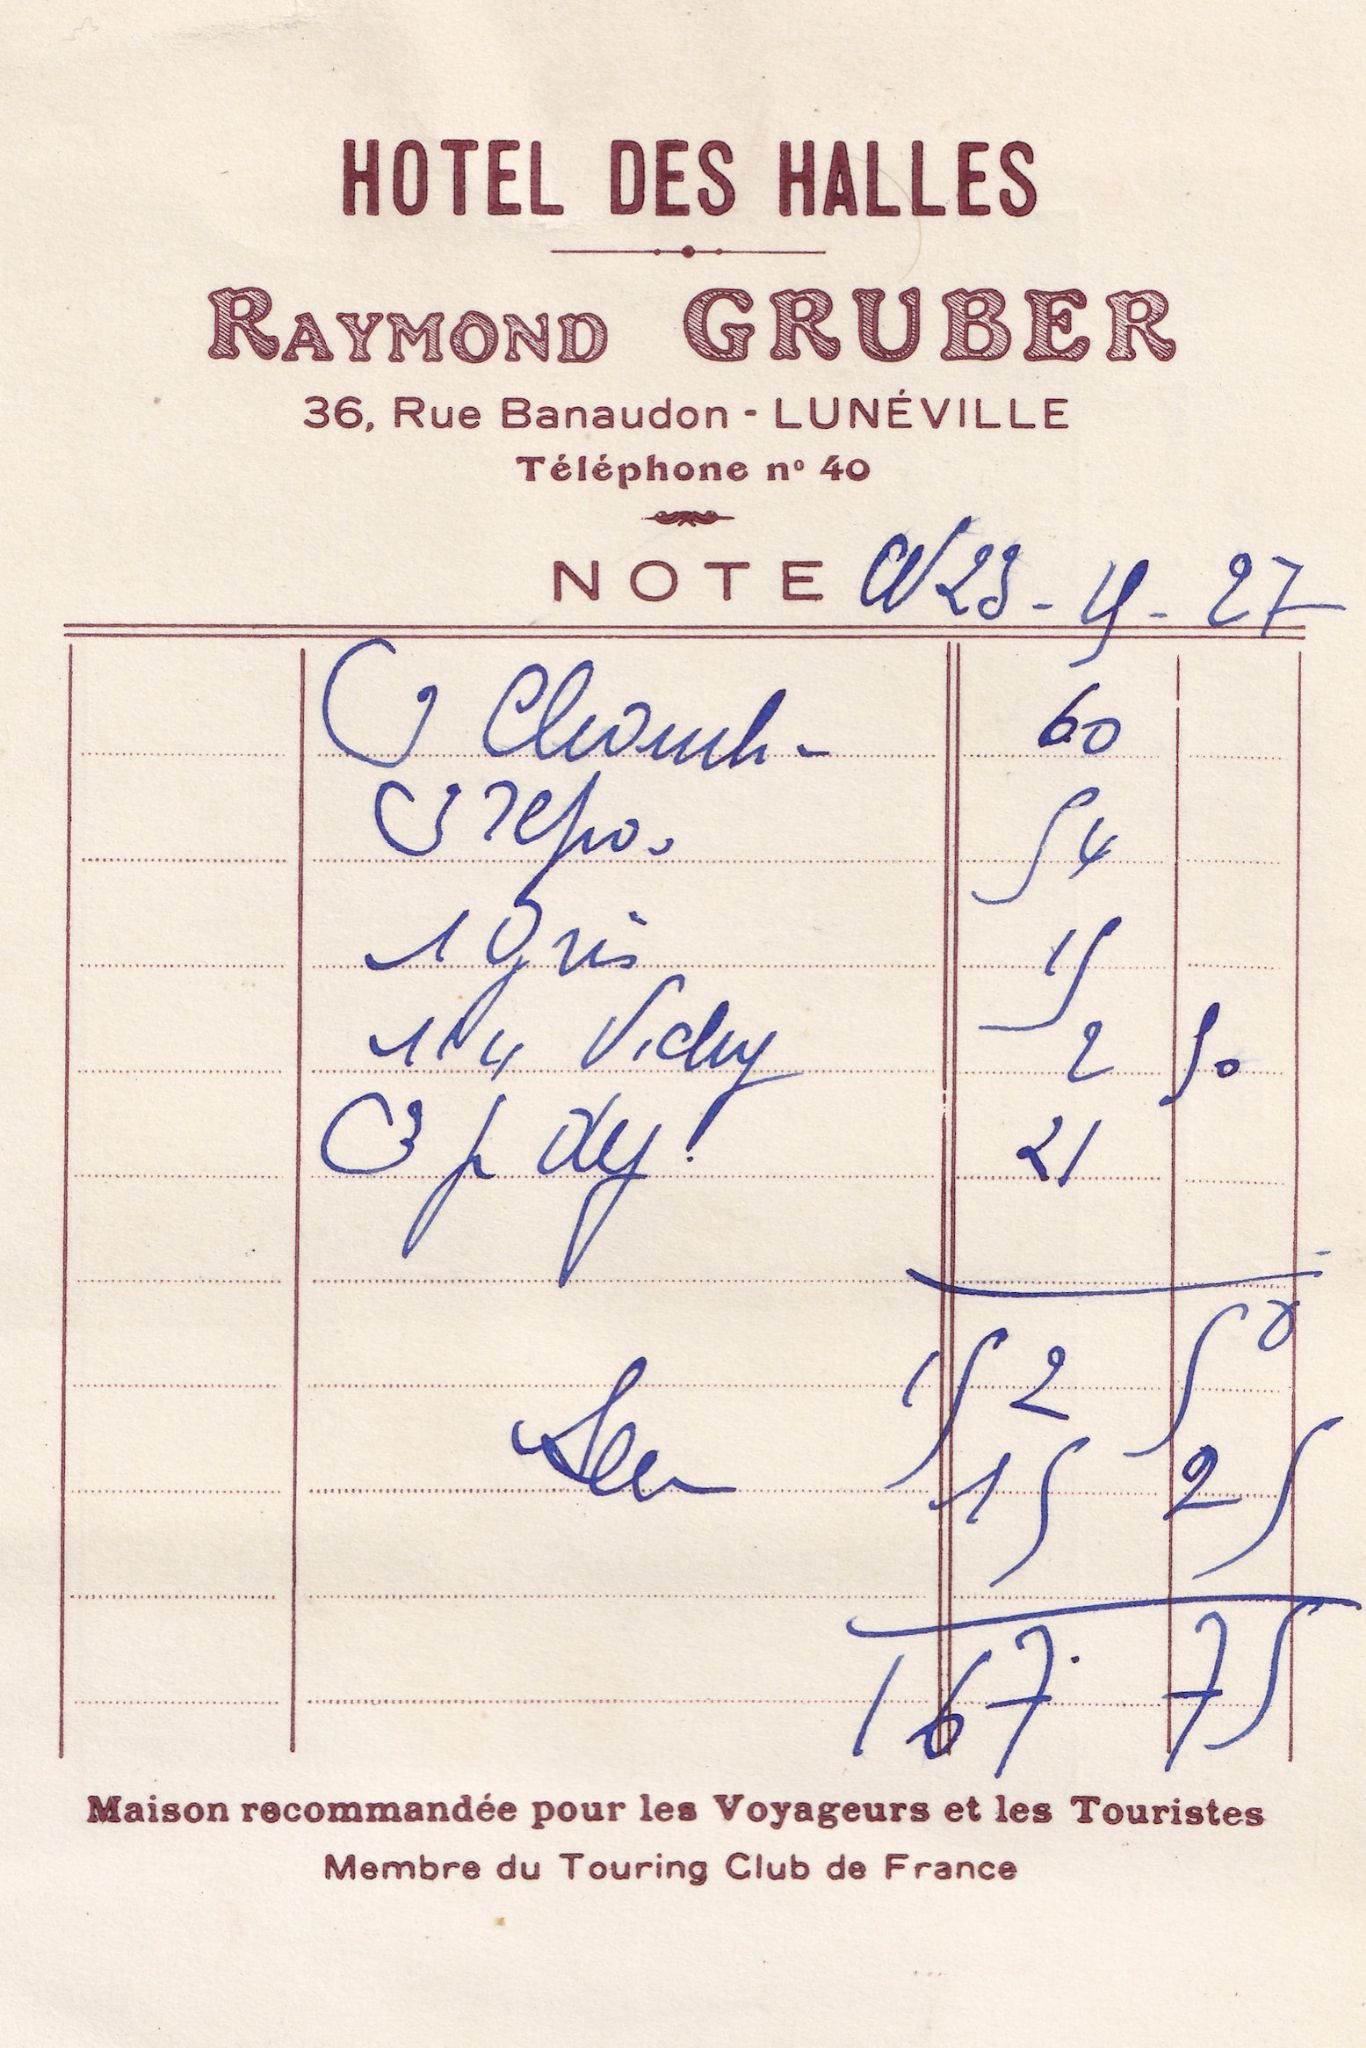 HOTEL DES HALLES
RAYMOND GRUBER
36, Rue Banaudon - LUNÉVILLE
Téléphone nº 40
NOTE 27
Chamb- 60
3 repas. 54
1 gris 15
1/4 Vichy 2 50
3 p dej. 21
152 50
15 25
167. 75
Maison recommandée pour les Voyageurs et les Touristes
Membre du Touring Club de France